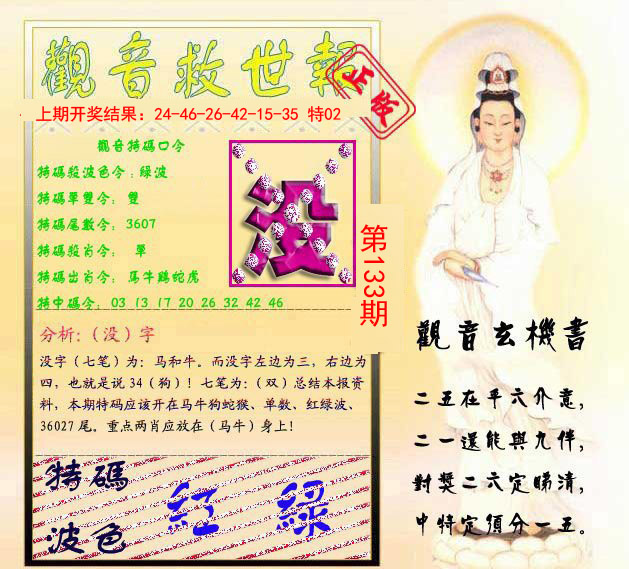 觀音救世報
正版
上期开奖结果：24-46-26-42-15-35 特02
觀音特碼口令
特碼殺波色令：綠波
特碼單雙令： 雙
特碼尾數令：3607
特碼殺肖令： 單
特碼出肖令：馬牛鷄蛇虎
特中碼令：03 13 17 20 26 32 42 46
没
第133期
分析：（没）字
没字（七笔）为：马和牛。而没字左边为三，右边为
四，也就是说 34（狗）！七笔为：（双）总结本报资
料，本期特码应该开在马牛狗蛇猴、单数、红绿波、
36027 尾。重点两肖应放在（马牛）身上！
特碼
波色
紅 綠
觀音玄機書
二五在平六介意，
二一還能與九伴，
對獎二六定睇清，
中特定須分一五。